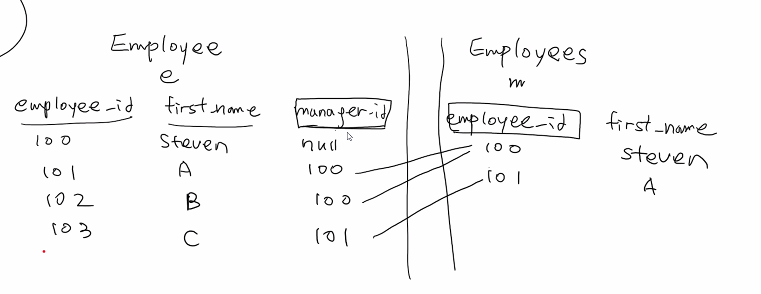 Employee
e
employee_id first_name manager_id
100 Steven null
101 A 100
102 B 100
103 C 101
Employees
m
employee_id first_name
100 Steven
101 A